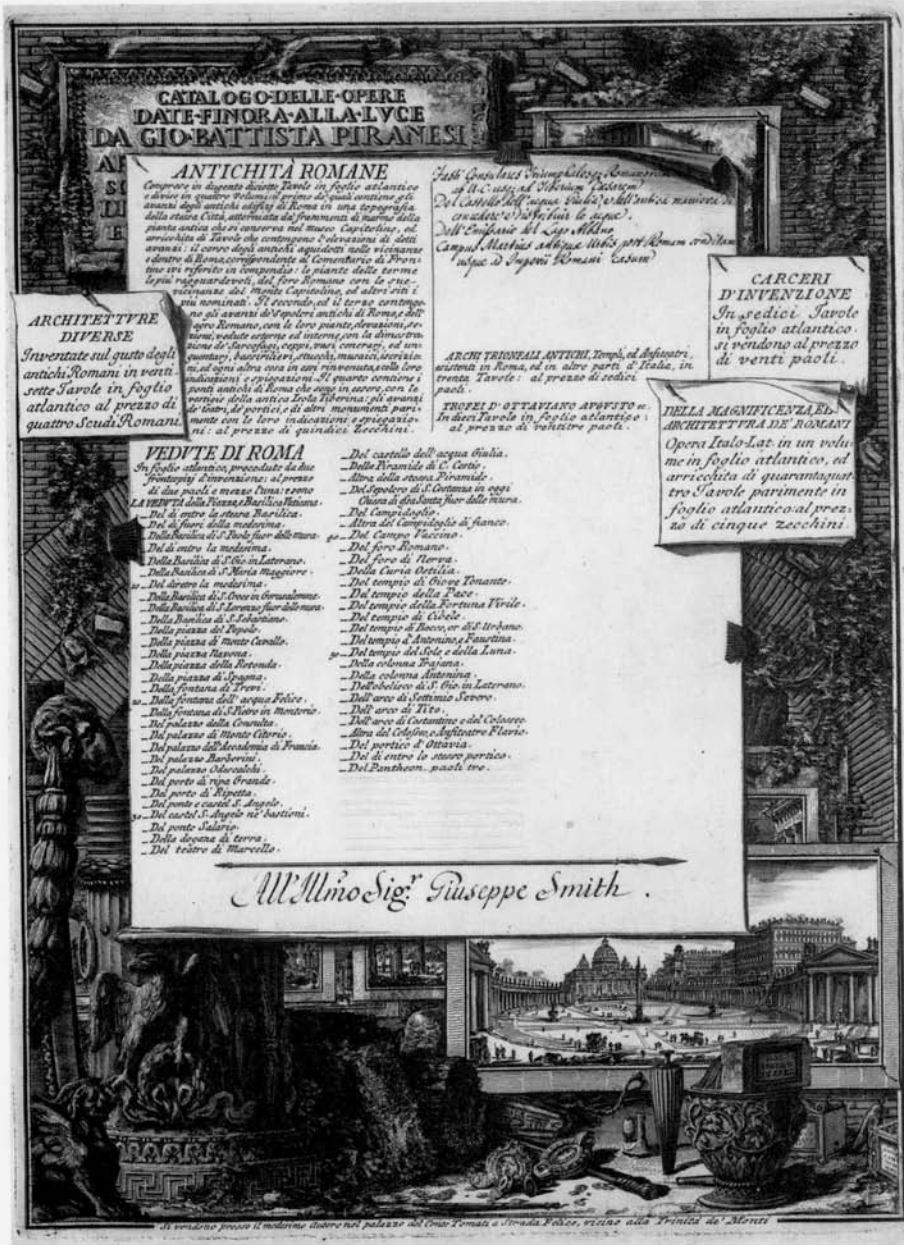 CATALOGO·DELLE·OPERE
DATE·FINORA·ALLA·LVCE
DA GIO·BATTISTA PIRANESI
ANTICHITÀ ROMANE
Comprese in dugento diciotto Tavole in foglio atlantico
e divise in quattro volumi: il primo de' quali contiene gli
avanzi degli antichi edifizj di Roma in una topografia
della stessa Città, attorniata da' frammenti di marmo della
pianta antica che si conserva nel museo Capitolino, ed
arricchita di Tavole che contengono l'elevazioni di detti
avanzi: il corso degli antichi aquidotti nelle vicinanze
e dentro di Roma, corrispondente al Comentario di Fron-
tino ivi riferito in compendio: le piante delle terme
le più ragguardevoli, del foro Romano con le sue
vicinanze del monte Capitolino, ed altri siti i
più nominati. Il secondo, ed il terzo contengo-
no gli avanzi de' Sepolcri antichi di Roma, e dell'
agro Romano, con le loro piante, elevazioni, se-
zioni, vedute esterne ed interne, con la dimostra-
zione de' Sarcofagi, ceppi, vasi cenerarj, ed un-
guentarj, bassirilievi, stucchi, musaici, iscrizio-
ni, ed ogni altra cosa in essi rinvenuta, colle loro
indicazioni e spiegazioni. Il quarto contiene i
ponti antichi di Roma che sono in essere, con le
vestigie della antica Isola Tiberina: gli avanzi
de' teatri, de' portici, e di altri monumenti pari-
mente con le loro indicazioni e spiegazio-
ni: al prezzo di quindici Zecchini.
Fasti Consulares Triumphalesq; Romanorum
ab U.C. usq; ad Tiberium Caesarem
Del Castello dell' acqua Giulia, e dell' antica maniera di
concedere e distribuir le acque.
Dell' Emissario del Lago Albano.
Campus Martius antiquae Urbis
ARCHITETTVRE
DIVERSE
Inventate sul gusto degli
antichi Romani in venti
sette Tavole in foglio
atlantico al prezzo di
quattro Scudi Romani.
CARCERI
D'INVENZIONE
In sedici Tavole
in foglio atlantico.
si vendono al prezzo
di venti paoli.
ARCHI TRIONFALI ANTICHI, Templi, ed Anfiteatri,
esistenti in Roma, ed in altre parti d'Italia, in
trenta Tavole: al prezzo di sedici
paoli.
TROFEI D'OTTAVIANO AVGVSTO ec.
In dieci Tavole in foglio atlantico:
al prezzo di ventitre paoli.
DELLA MAGNIFICENZA, ED
ARCHITETTVRA DE' ROMANI
Opera Italo-Lat. in un volu-
me in foglio atlantico, ed
arricchita di quarantaquat
tro Tavole parimente in
foglio atlantico: al prez-
zo di cinque zecchini.
VEDVTE DI ROMA
In foglio atlantico, precedute da due
frontispizj d'invenzione: al prezzo
di due paoli e mezzo l'una: e sono
LA VEDVTA della Piazza, e Basilica Vaticana.
_Del di entro la stessa Basilica.
_Del di fuori della medesima.
_Della Basilica di S. Paolo fuor delle mura.
_Del di entro la medesima.
_Della Basilica di S. Gio. in Laterano.
_Della Basilica di S. Maria Maggiore.
10 _Del dietro la medesima.
_Della Basilica di S. Croce in Gerusalemme.
_Della Basilica di S. Lorenzo fuor delle mura.
_Della Basilica di S. Sebastiano.
_Della piazza del Popolo.
_Della piazza di monte Cavallo.
_Della piazza Navona.
_Della piazza della Rotonda.
_Della piazza di Spagna.
_Della fontana di Trevi.
20 _Della fontana dell' acqua Felice.
_Della fontana di S. Pietro in Montorio.
_Del palazzo della Consulta.
_Del palazzo di Monte Citorio.
_Del palazzo dell' Accademia di Francia.
_Del palazzo Barberini.
_Del palazzo Odescalchi.
_Del porto di ripa Grande.
_Del porto di Ripetta.
_Del ponte e castel S. Angelo.
30 _Del castel S. Angelo ne' bastioni.
_Del ponte Salario.
_Della dogana di terra.
_Del teatro di Marcello.
_Del castello dell' acqua Giulia.
_Della Piramide di C. Cestio.
_Altra della stessa Piramide.
_Del Sepolcro di S. Costanza in oggi
Chiesa di essa Santa fuor delle mura.
_Del Campidoglio.
_Altra del Campidoglio di fianco.
40 _Del Campo Vaccino.
_Del foro Romano.
_Del foro di Nerva.
_Della Curia Ostilia.
_Del tempio di Giove Tonante.
_Del tempio della Pace.
_Del tempio della Fortuna Virile.
_Del tempio di Cibele.
_Del tempio di Bacco, or di S. Urbano.
_Del tempio d'Antonino, e Faustina.
50 _Del tempio del Sole e della Luna.
_Della colonna Trajana.
_Della colonna Antonina.
_Dell' obelisco di S. Gio. in Laterano.
_Dell' arco di Settimio Severo.
_Dell' arco di Tito.
_Dell' arco di Costantino e del Colosseo.
_Altra del Colosseo, o Anfiteatro Flavio.
_Del portico d'Ottavia.
_Del di entro lo stesso portico.
_Del Pantheon. paoli tre.
All' Illmo Sigr. Giuseppe Smith.
Si vendono presso il medesimo Autore nel palazzo del Conte Tomati a Strada Felice, vicino alla Trinità de' Monti